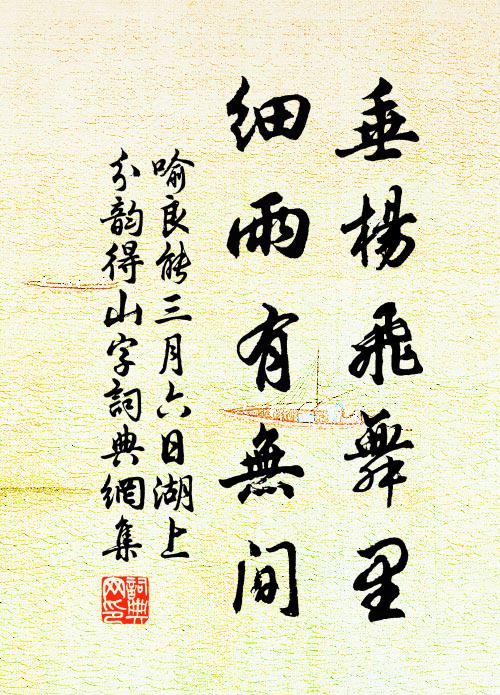 垂楊飛舞里
細雨有無間
喻良能三月六日湖上
分韵得山字詞典網集
詞典網印